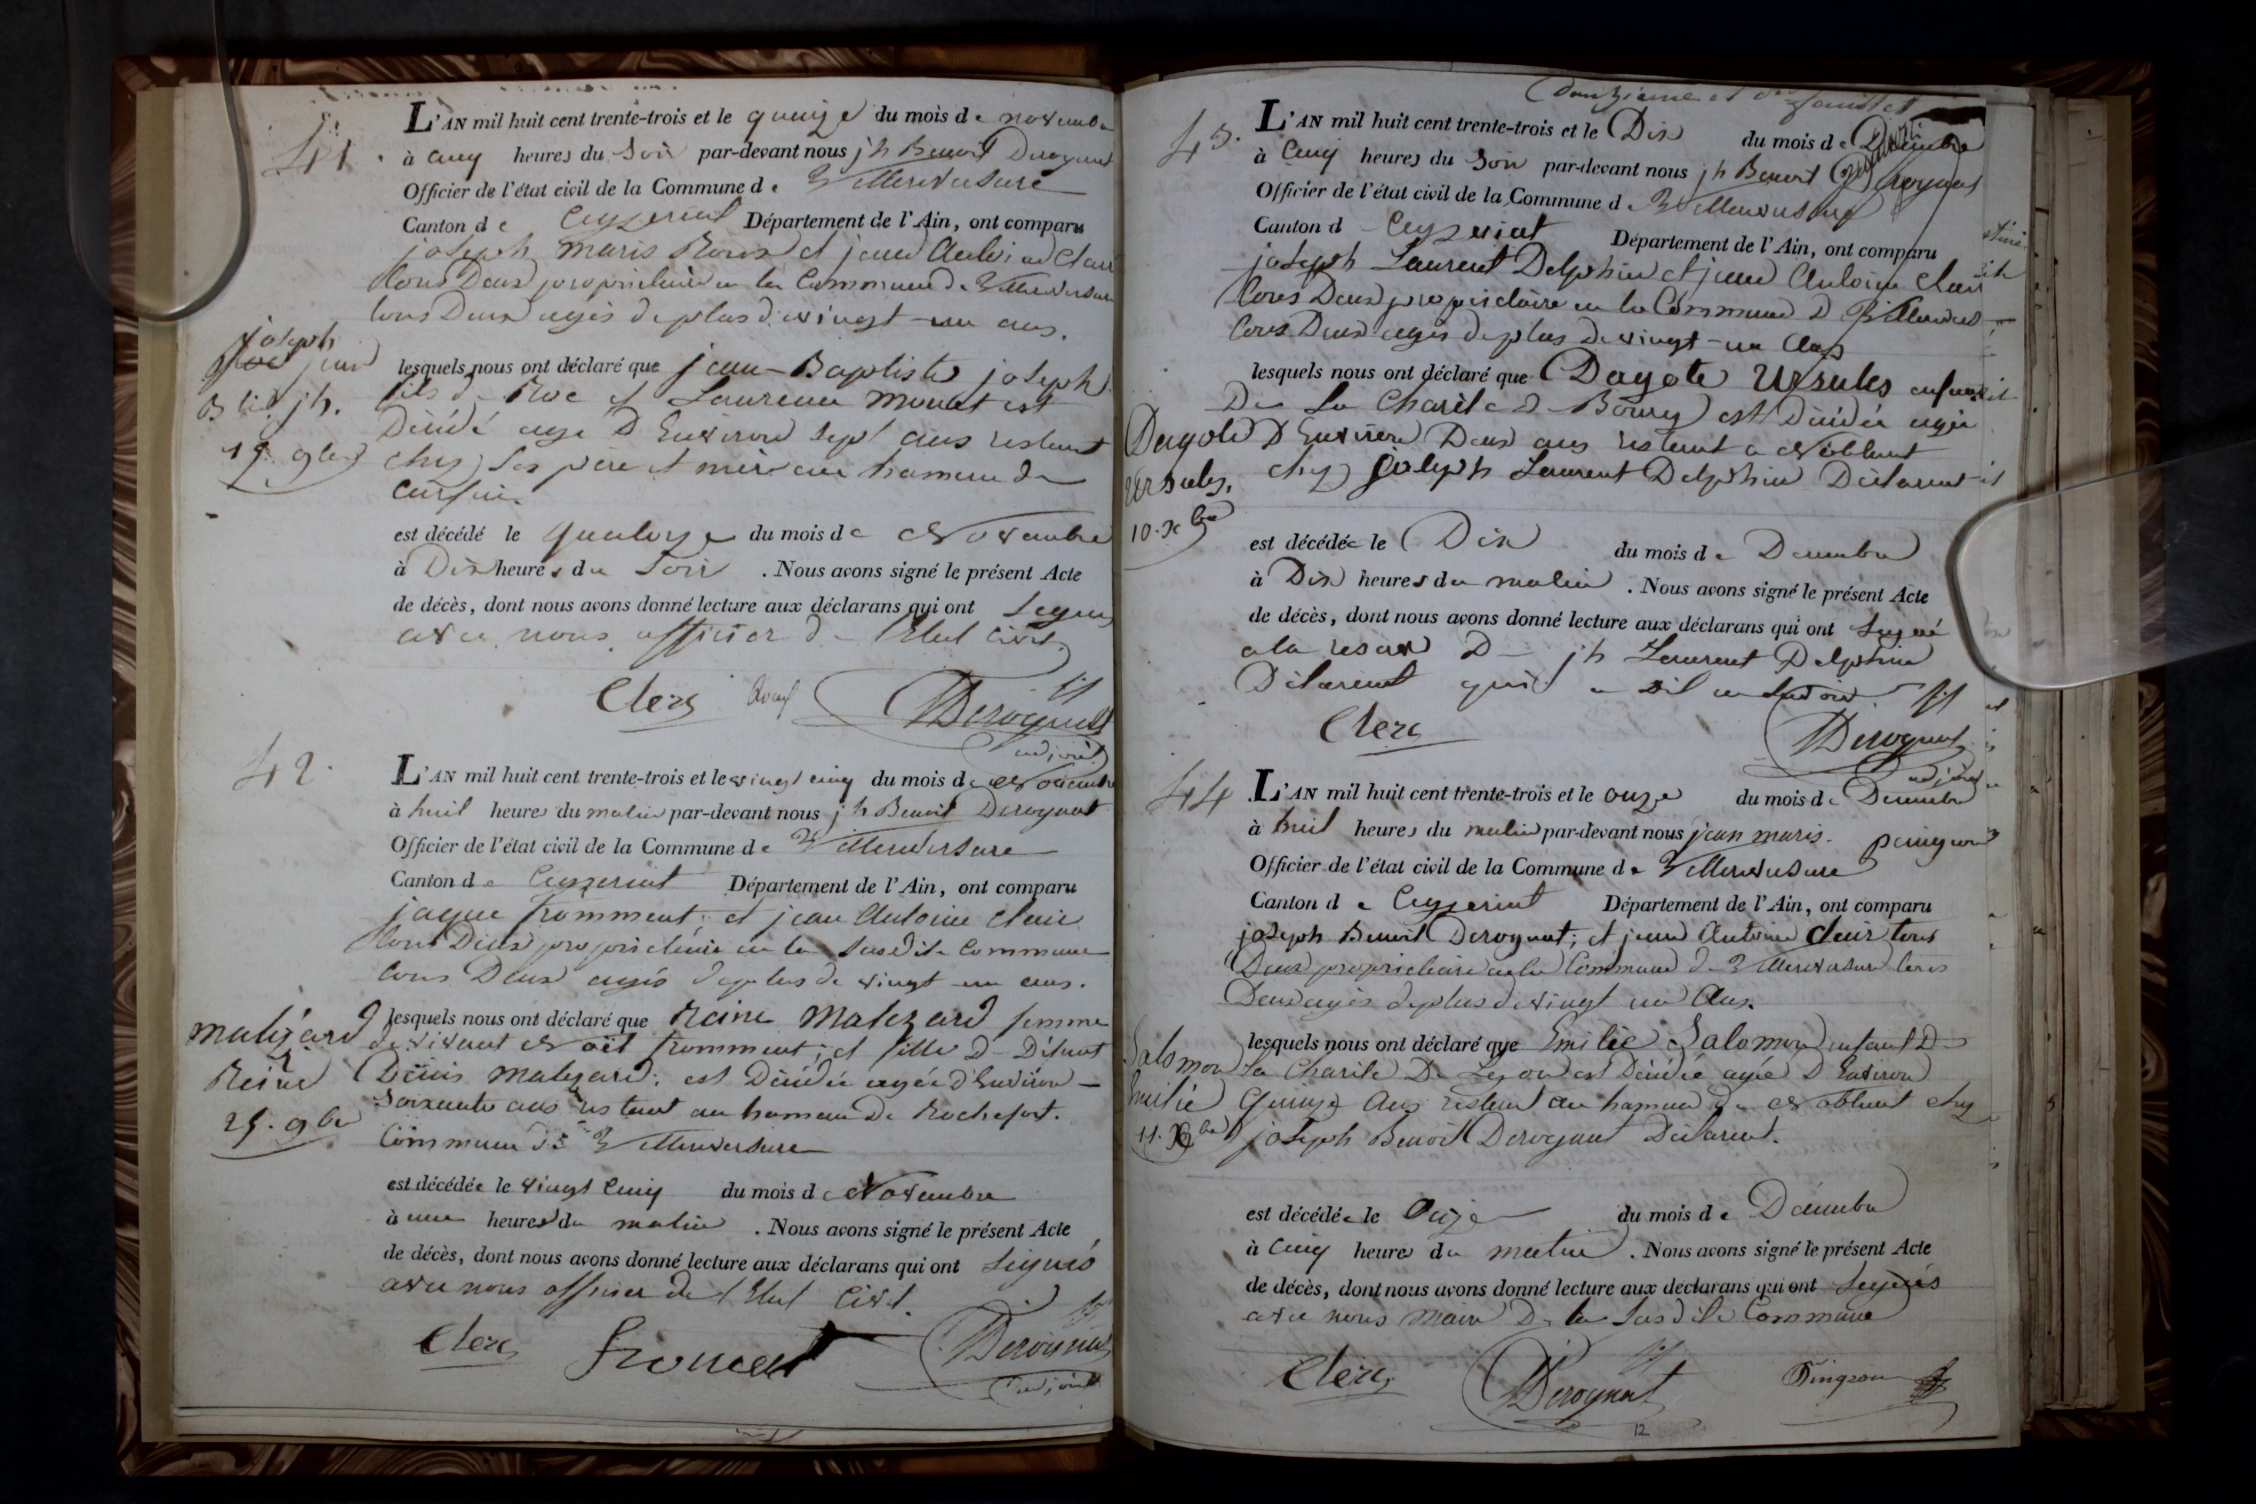 41.
L'AN mil huit cent trente-trois et le quinze du mois de novembre
à cinq heures du soir par-devant nous jh Benoit Derognat
Officier de l'état civil de la Commune de Villereversure
Canton de Ceyzeriat Département de l'Ain, ont comparu
joseph maris et jean Antoine Clair
tous Deux propriétaire en la Commune De Villereversure
tous Deux agés de plus de vingt-un ans.
joseph
jean
Btiste jh.
15 9bre
lesquels nous ont déclaré que jean-Baptiste joseph
fils de Roc et Laurence monet est
Décédé age D Environ sept ans restant
chez ses père et mère au hameau de
est décédé le quatorze du mois de Novembre
à Dix heures du soir. Nous avons signé le présent Acte
de décès, dont nous avons donné lecture aux déclarans qui ont signes
avec nous officier de l'Etat Civil.
Clerc Derognat
adjoint
42.
L'AN mil huit cent trente-trois et le vingt cinq du mois de Novembre
à huit heures du matin par-devant nous jh Benoit Derognat
Officier de l'état civil de la Commune de Villereversure
Canton de Ceyzeriat Département de l'Ain, ont comparu
jaque fromment; et jean Antoine clair
tous Deux propriétaire en la susdite Commune
tous Deux agés de plus de vingt-un ans.
malezard
Reine
25. 9bre
lesquels nous ont déclaré que Reine Malezard femme
de vivant Noël fromment; et fille D Défunt
Denis malezard; est Décédée agée d'Environ
soixante ans restant au hameau De Rochefort.
Commune de Villereversure
est décédée le vingt cinq du mois de Novembre
à une heures du matin. Nous avons signé le présent Acte
de décès, dont nous avons donné lecture aux déclarans qui ont signés
avec nous officier de l'Etat Civil.
Clerc froment Derognat
adjoint
Douzieme et
43.
L'AN mil huit cent trente-trois et le Dix du mois de Décembre
à cinq heures du soir par-devant nous jh Benoit Derognat
Officier de l'état civil de la Commune de Villereversure
Canton d Ceyzeriat Département de l'Ain, ont comparu
joseph Laurent Delphin et jean Antoine clair
tous Deux propriétaire en la Commune D Villerevers
tous Deux agés de plus de vingt-un ans
Dagote
Ursules,
10. Xbre
lesquels nous ont déclaré que Dagote Ursules enfant
De la Charité D Bourg est Décédée agée
D Environ Deux ans restant a Noblent
chez joseph Laurent Delphin Déclarent
est décédée le Dix du mois de Décembre
à Dix heures du matin. Nous avons signé le présent Acte
de décès, dont nous avons donné lecture aux déclarans qui ont signé
a la reserve D jh Laurent Delphin
Déclarent qui a dit ne savoir
Clerc Derognat
adjoint
44
L'AN mil huit cent trente-trois et le onze du mois de Décembre
à huit heures du matin par-devant nous jean maris. pingeon
Officier de l'état civil de la Commune de Villereversure
Canton de Ceyzeriat Département de l'Ain, ont comparu
joseph Benoit Derognat; et jean Antoine clair tous
Deux propriétaire en la Commune de Villereversure tous
Deux agés de plus de vingt un ans.
Salomon
Emilie
11. Xbre
lesquels nous ont déclaré que Emilie Salomon enfant D
la Charité De Lyon est Décédé agée D Environ
quinze ans restant au hameau de Noblent chez
joseph Benoit Derognat Déclarent.
est décédée le onze du mois de Décembre
à cinq heures du matin. Nous avons signé le présent Acte
de décès, dont nous avons donné lecture aux déclarans qui ont signés
avec nous maire De la susdite Commune
Clerc Derognat Pingeon
12